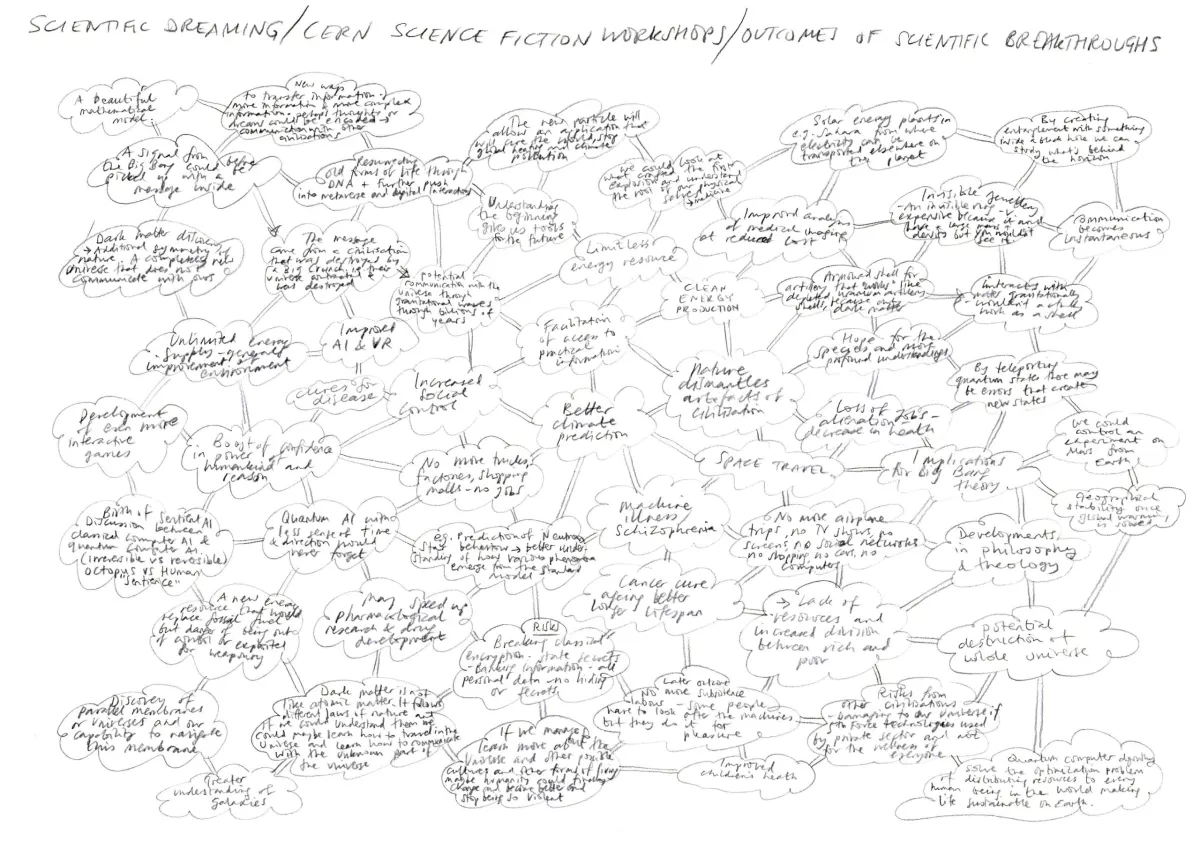 SCIENTIFIC DREAMING/CERN SCIENCE FICTION WORKSHOPS/OUTCOMES OF SCIENTIFIC BREAKTHROUGHS
A beautiful
mathematical
model.
New ways
to transfer information -
more information & more complex
information, perhaps thoughts or
dreams could be encoded →
communication with other
civilisations
The new particle will
allow an application that
will cure the world, stop
global heating and climate
pollution
Solar energy plants in
e.g. Sahara from where
electricity can be
transported elsewhere on
the planet
By creating
entanglement with something
inside a black hole we can
study what's behind
the horizon
A signal from
the Big Bang could be
picked up with a
message inside
Resurrecting
old forms of life through
DNA + further push
into metaverse and digital interactions
we could look at
what created the first
explosion and understand
the root of our physical
selves →
medicine
Understanding
the beginning
gives us tools
for the future
Improved analysis
of medical imaging
at reduced cost
Invisible jewellery
- An invisible ring - v.
expensive because it would
have a large mass and
density but you would not
see it
Communication
becomes
instantaneous
Dark matter discovery
→ Additional symmetry of
nature. A completely new
universe that does not
communicate with ours
The message
came from a civilisation
that was destroyed by
a Big Crunch, ie their
universe contracted &
was destroyed
potential
communication with the
universe through
gravitational waves
through billions of
years
Limitless
energy resource
CLEAN
ENERGY
PRODUCTION
Armoured shell for
artillery that works like
depleted uranium artillery
shells, because only
dark matter
interacts with
matter gravitationally
- wouldn't actually
work as a shell
Unlimited energy
supply - general
improvement of
environment
Improved
AI & VR
Facilitation
of access to
practical
information
Hope for the
species and more
profound understandings
cures for
disease
Increased
social
control
Nature
dismantles
artefacts of
civilisation
By teleporting
quantum states there may
be errors that create
new states
Development
of even more
interactive
games
Boost of confidence
in power of
humankind and
reason
Better
climate
prediction
Loss of jobs -
alienation -
decrease in health
We could
control an
experiment on
Mars from
Earth!
No more trucks,
factories, shopping
malls - no jobs
SPACE TRAVEL
Implications
for Big Bang
theory
Geographical
stability once
global warming
is solved
Birth of Sentient AI
Discussion between
classical computer AI &
quantum computer AI
(irreversible vs reversible)
octopus vs Human
"sentience"
Quantum AI with
less sense of time
& direction would
never forget
eg. Prediction of Neutron
Star behaviour → better under-
standing of how various phenomena
emerge from the standard
model
machine
illness
Schizophrenia
No more airplane
trips, no TV shows, no
screens, no social networks
no shopping, no cars, no
computers
Developments
in philosophy
& theology
A new energy
resource that would
replace fossil fuel
but danger of being out
of control or exploited
for weaponry
May speed up
pharmacological
research & drug
development
RISKS
Breaking classical
encryption - state secrets
- Banking information - all
personal data - no hiding
or secrets
Cancer cure
ageing better
longer lifespan
→ Lack of
resources and
increased division
between rich and
poor
potential
destruction of
whole universe
Discovery of
parallel membranes
or universes and our
capability to navigate
this membrane
Dark matter is not
like atomic matter. It follows
different laws of nature and
if we could understand them we
could maybe learn how to travel in the
universe and learn how to communicate
with the unknown part of
the universe
Later outcome
No more subsistence
labour - some people
have to look after the machines
but they do it for
pleasure
Risks from
other civilisations
Damaging to our universe if
used by private sector and not
for the wellness of
everyone
If we manage to
learn more about the
universe and other possible
cultures and other forms of living
maybe humanity could finally
change and become better and
stop being so violent
Improved
children's health
Greater
understanding of
galaxies
Quantum computer
solve the optimization problem
of distributing resources to every
human being in the world making
life sustainable on Earth.